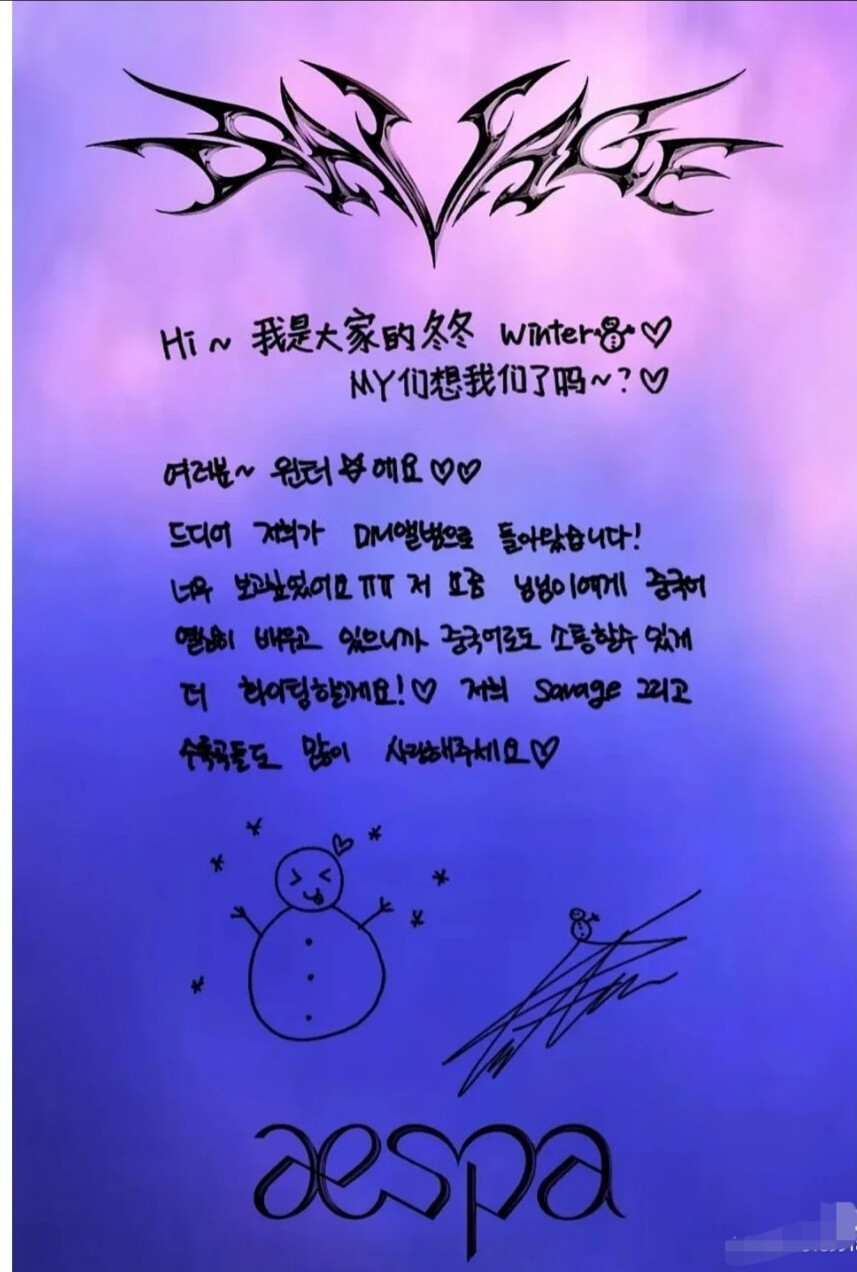 SAVAGE
Hi ~ 我是大家的冬冬 Winter☃♡
MY们想我们了吗~?♡
여러분~ 윈터예요♡♡
드디어 저희가 미니앨범으로 돌아왔습니다!
너무 보고싶었어요ㅠㅠ 저 요즘 닝닝이에게 중국어
열심히 배우고 있으니까 중국어로도 소통할수 있게
더 화이팅할게요!♡ 저희 Savage 그리고
수록곡들도 많이 사랑해주세요♡
aespa